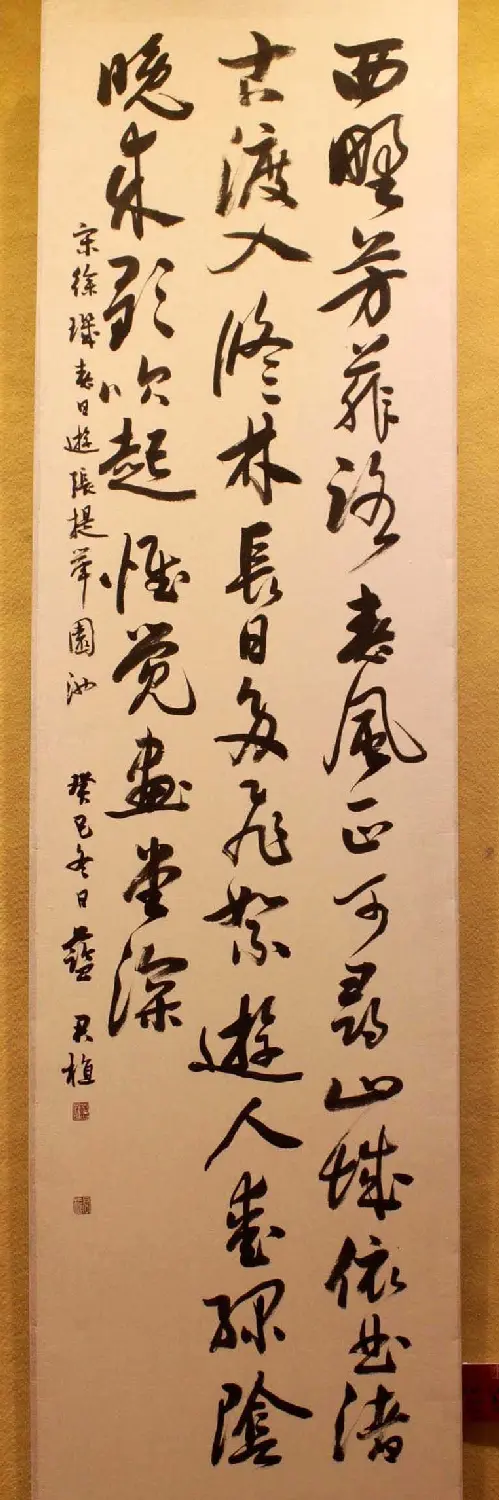 西野芳菲路春風正可尋山城依曲渚
古渡入修林長日多飛絮遊人愛綠陰
晚來歌吹起惟覺畫堂深
宋徐璣春日遊張提舉園池 癸巳冬日藍君植